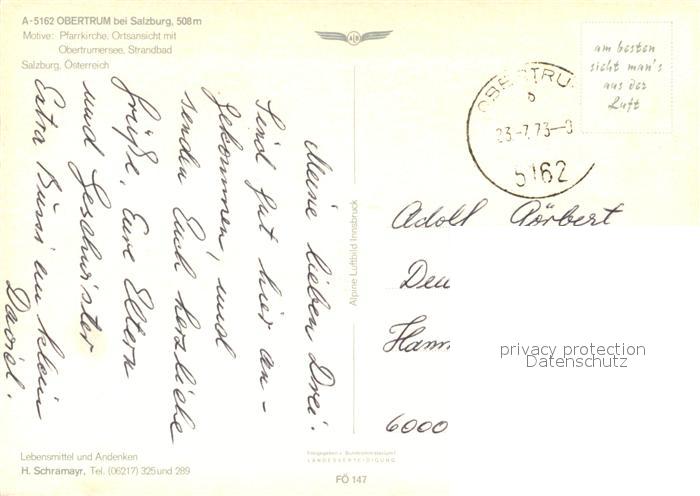 A-5162 OBERTRUM bei Salzburg, 508 m
Motive: Pfarrkirche, Ortsansicht mit
Obertrumersee, Strandbad
Salzburg, Österreich
am besten
sieht man's
aus der
Luft
OBERTRU
b
23.-7.73-0
5162
Meine lieben Drei!
Sind gut hier an-
gekommen, und
senden Euch herzliche
Grüße, Eure Eltern
und Geschwister
Extra Bussi an klein
David.
Alpine Luftbild Innsbruck
Adolf
Deu
Ham
6000
privacy protection
Datenschutz
Lebensmittel und Andenken
H. Schramayr, Tel. (06217) 325 und 289
Freigegeben v. Bundesministerium f.
LANDESVERTEIDIGUNG
FÖ 147